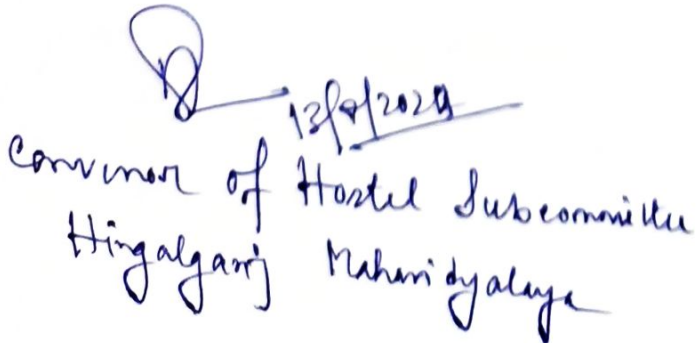 13/8/2024
Convenor of Hostel Subcommittee
Hingalganj Mahavidyalaya